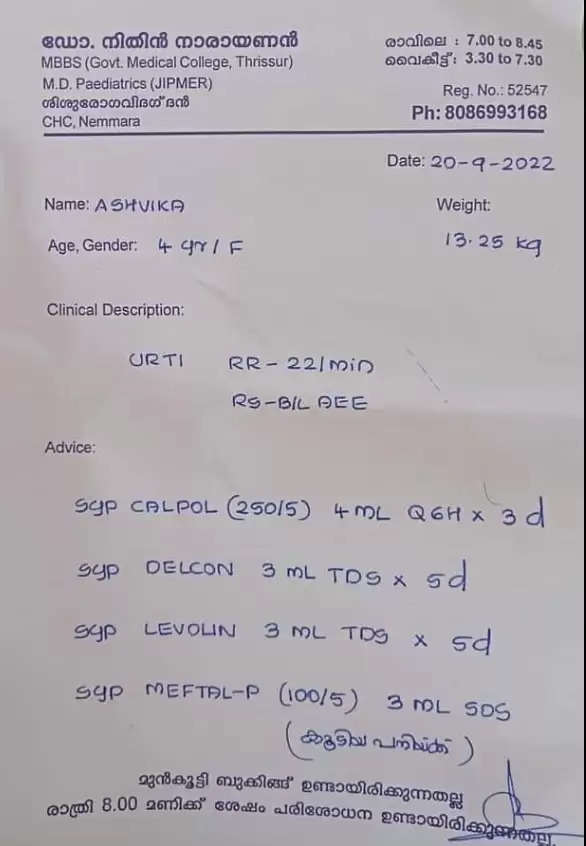 ഡോ. നിതിൻ നാരായണൻ
MBBS (Govt. Medical College, Thrissur)
M.D. Paediatrics (JIPMER)
ശിശുരോഗവിദഗ്ദൻ
CHC, Nemmara
രാവിലെ : 7.00 to 8.45
വൈകീട്ട്: 3.30 to 7.30
Reg. No.: 52547
Ph: 8086993168
Date: 20-9-2022
Name: ASHVIKA
Weight:
Age, Gender: 4 yr/F
13.25 kg
Clinical Description:
URTI RR-22/min
RS-B/L AEE
Advice:
Syp CALPOL (250/5) 4 mL Q6H x 3d
Syp DELCON 3 mL TDS x 5d
Syp LEVOLIN 3 mL TDS x 5d
Syp MEFTAL-P (100/5) 3 mL SOS
(കൂടിയ പനിയ്ക്ക്)
മുൻകൂട്ടി ബുക്കിങ്ങ് ഉണ്ടായിരിക്കുന്നതല്ല
രാത്രി 8.00 മണിക്ക് ശേഷം പരിശോധന ഉണ്ടായിരിക്കുന്നതല്ല.